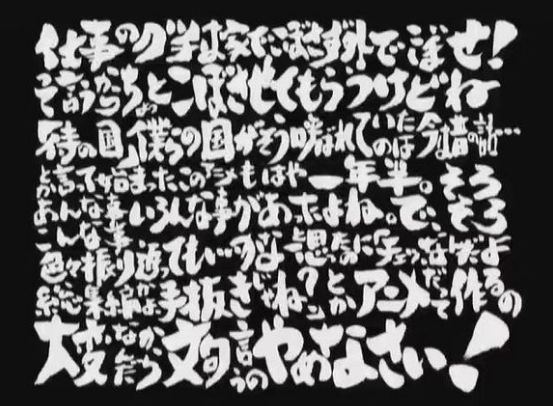 仕事のグチは家でこぼさず外でこぼせ!
って言うからちょっとこぼさせてもらうつけどね
「侍の国」僕らの国がそう呼ばれていたのは今は昔の話…
とか言って始まったこのアニメもはや一年半。そろそろ
あんな事いろんな事があったよね。で、
こんな事
色々振り返っても…かなと思ったのに「チッ、なんだよ
総集編かよ、手抜きじゃね?」とかアニメだって作るの
大変なんだから文句言うのやめなさい!